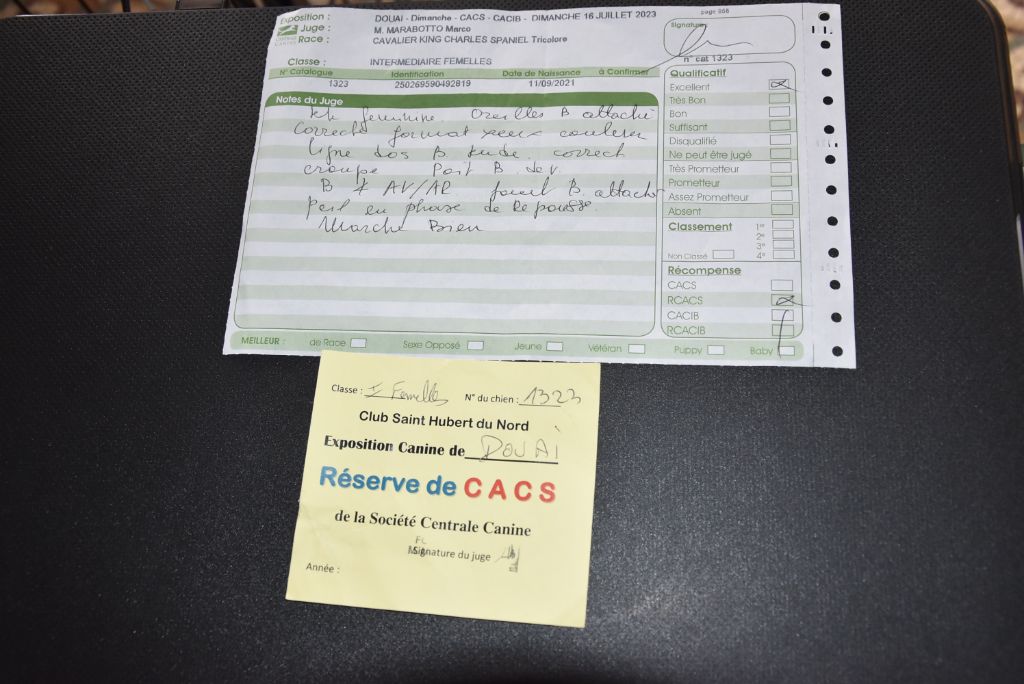 page 368
Exposition : DOUAI - Dimanche - CACS - CACIB - DIMANCHE 16 JUILLET 2023
Juge : M. MARABOTTO Marco
Race : CAVALIER KING CHARLES SPANIEL Tricolore
Signature
Classe : INTERMEDIAIRE FEMELLES
n° cat 1323
N° Catalogue Identification Date de Naissance à Confirmer
1323 250269590492819 11/09/2021
Notes du Juge
feminine. Oreilles B attaché
Correct format yeux couleur
ligne dos B correct
croupe Poil B dev
B AV/AR fouet B. attaché
Poil en phase de Repousse.
Marche Bien
Qualificatif
Excellent
Très Bon
Bon
Suffisant
Disqualifié
Ne peut être jugé
Très Prometteur
Prometteur
Assez Prometteur
Absent
Classement 1er
2e
3e
Non Classé 4e
Récompense
CACS
RCACS
CACIB
RCACIB
MEILLEUR : de Race Sexe Opposé Jeune Vétéran Puppy Baby
Classe : I Femelles N° du chien : 1323
Club Saint Hubert du Nord
Exposition Canine de DOUAI
Réserve de CACS
de la Société Centrale Canine
Signature du juge
Année :